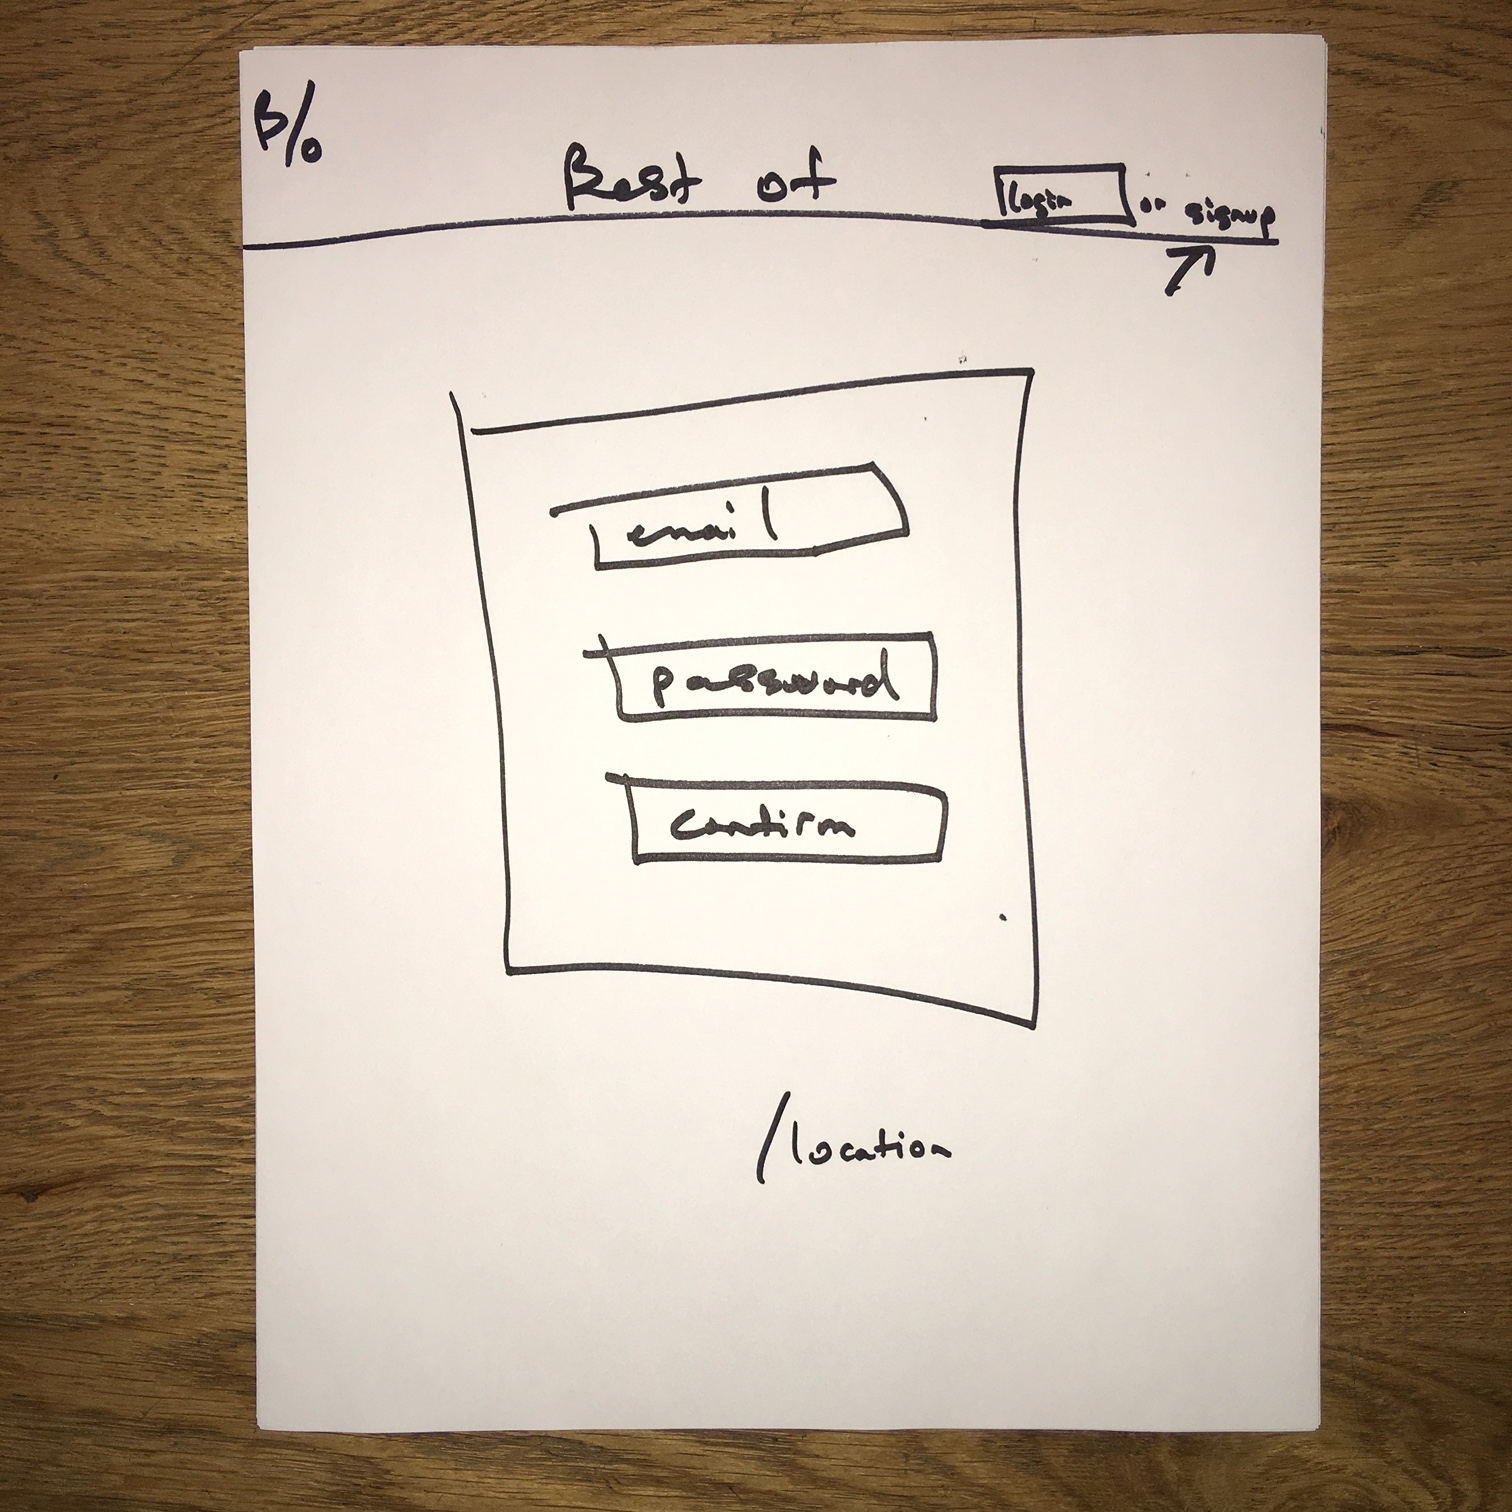 B/o
Best of
login or signup
email
password
confirm
/location